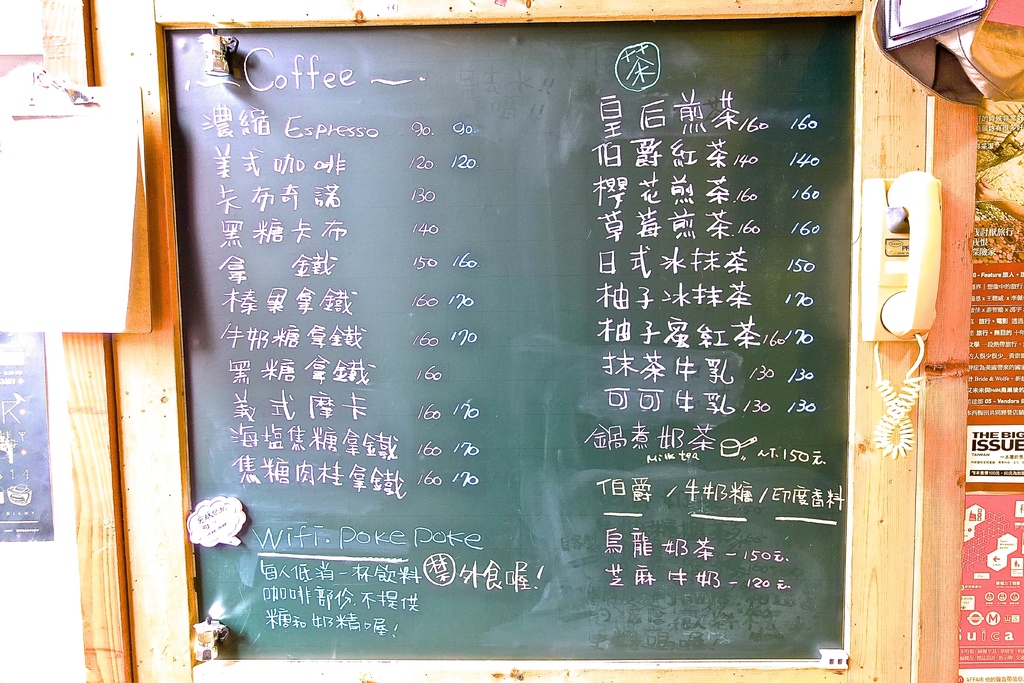 Coffee
濃縮 Espresso 90. 90.
美式咖啡 120. 120.
卡布奇諾 130
黑糖卡布 140
拿鐵 150 160.
榛果拿鐵 160 170
牛奶糖拿鐵 160 170
黑糖拿鐵 160
義式摩卡 160 170
海塩焦糖拿鐵 160 170
焦糖肉桂拿鐵 160 170
Wifi. poke poke
每人低消一杯飲料 禁外食喔!
咖啡部份,不提供
糖和奶精喔!
茶
皇后煎茶 160 160
伯爵紅茶 140 140
櫻花煎茶 160 160
草莓煎茶 160 160
日式冰抹茶 150
柚子冰抹茶 170
柚子蜜紅茶 160 170
抹茶牛乳 130 130
可可牛乳 130 130
鍋煮奶茶 NT.150元.
Milk tea
伯爵 / 牛奶糖 / 印度香料
烏龍奶茶 - 150元.
芝麻牛奶 - 120元.
THE BIG
ISSUE
TAIWAN
Suica